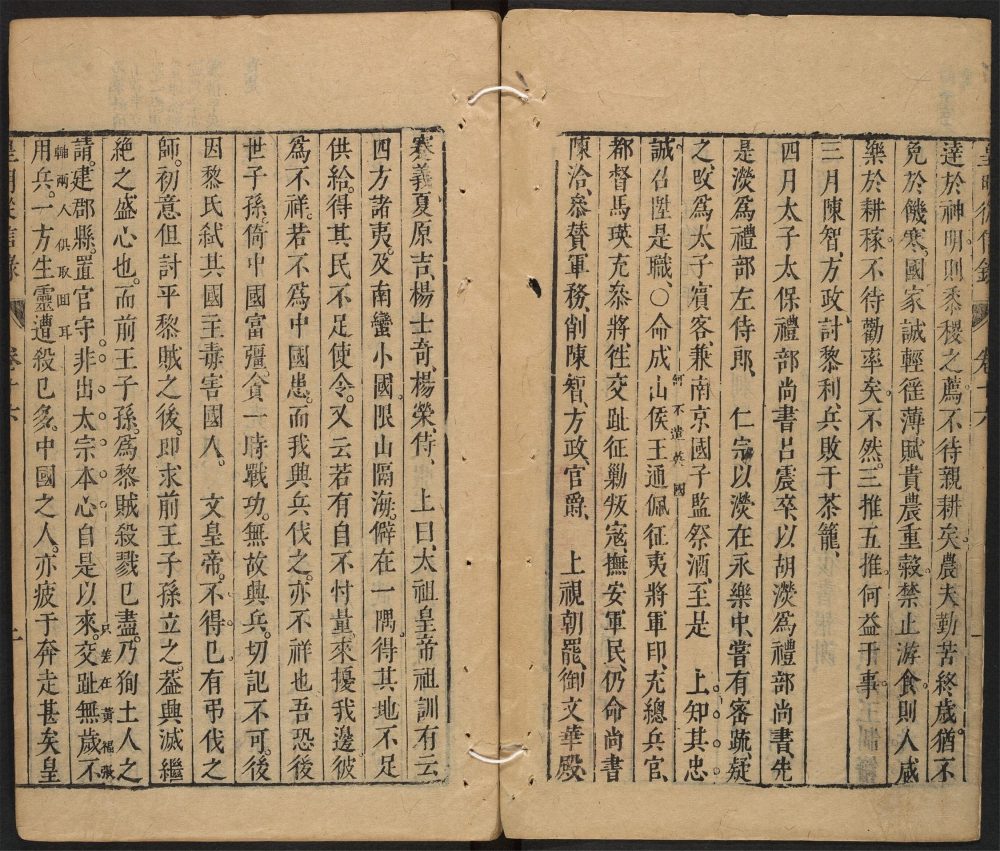 達於神明則黍稷之薦不待親耕矣農夫勤苦終歲猶不
免於饑寒國家誠輕徭薄賦貴農重穀禁止游食則人咸
樂於耕稼不待勸率矣不然三推五推何益于事
三月陳智、方政、討黎利兵敗于茶籠、
四月太子太保禮部尚書呂震卒、以胡濙為禮部尚書、先
是濙為禮部左侍郎、仁宗以濙在永樂中、嘗有密疏、疑
之、改為太子賓客、兼南京國子監祭酒、至是 上知其忠
何不遣英國
誠、召陞是職、○命成山侯王通佩征夷將軍印、充總兵官、
都督馬瑛充叅將、徃交趾征勦叛寇、撫安軍民、仍命尚書
陳洽、叅贊軍務、削陳智、方政、官爵、 上視朝罷、御文華殿、
蹇義、夏原吉、楊士奇、楊榮、侍、 上曰、太祖皇帝祖訓有云、
四方諸夷、及南蠻小國、限山隔海、僻在一隅、得其地不足
供給、得其民不足使令、又云若有自不忖量、來擾我邊、彼
為不祥、若不為中國患、而我興兵伐之、亦不祥也、吾恐後
世子孫、倚中國富彊、貪一時戰功、無故興兵、切記不可、後
因黎氏弒其國主、毒害國人、 文皇帝不得已有弔伐之
師、初意但討平黎賊之後、即求前王子孫立之、葢興滅繼
絶之盛心也、而前王子孫、為黎賊殺戮已盡、乃狥土人之
只差在黃福張
輔兩人俱取囬耳
請、建郡縣、置官守、非出太宗本心、自是以來、交趾無歲不
用兵、一方生靈、遭殺已多、中國之人、亦疲于奔走甚矣、皇
皇明從信錄 卷十六